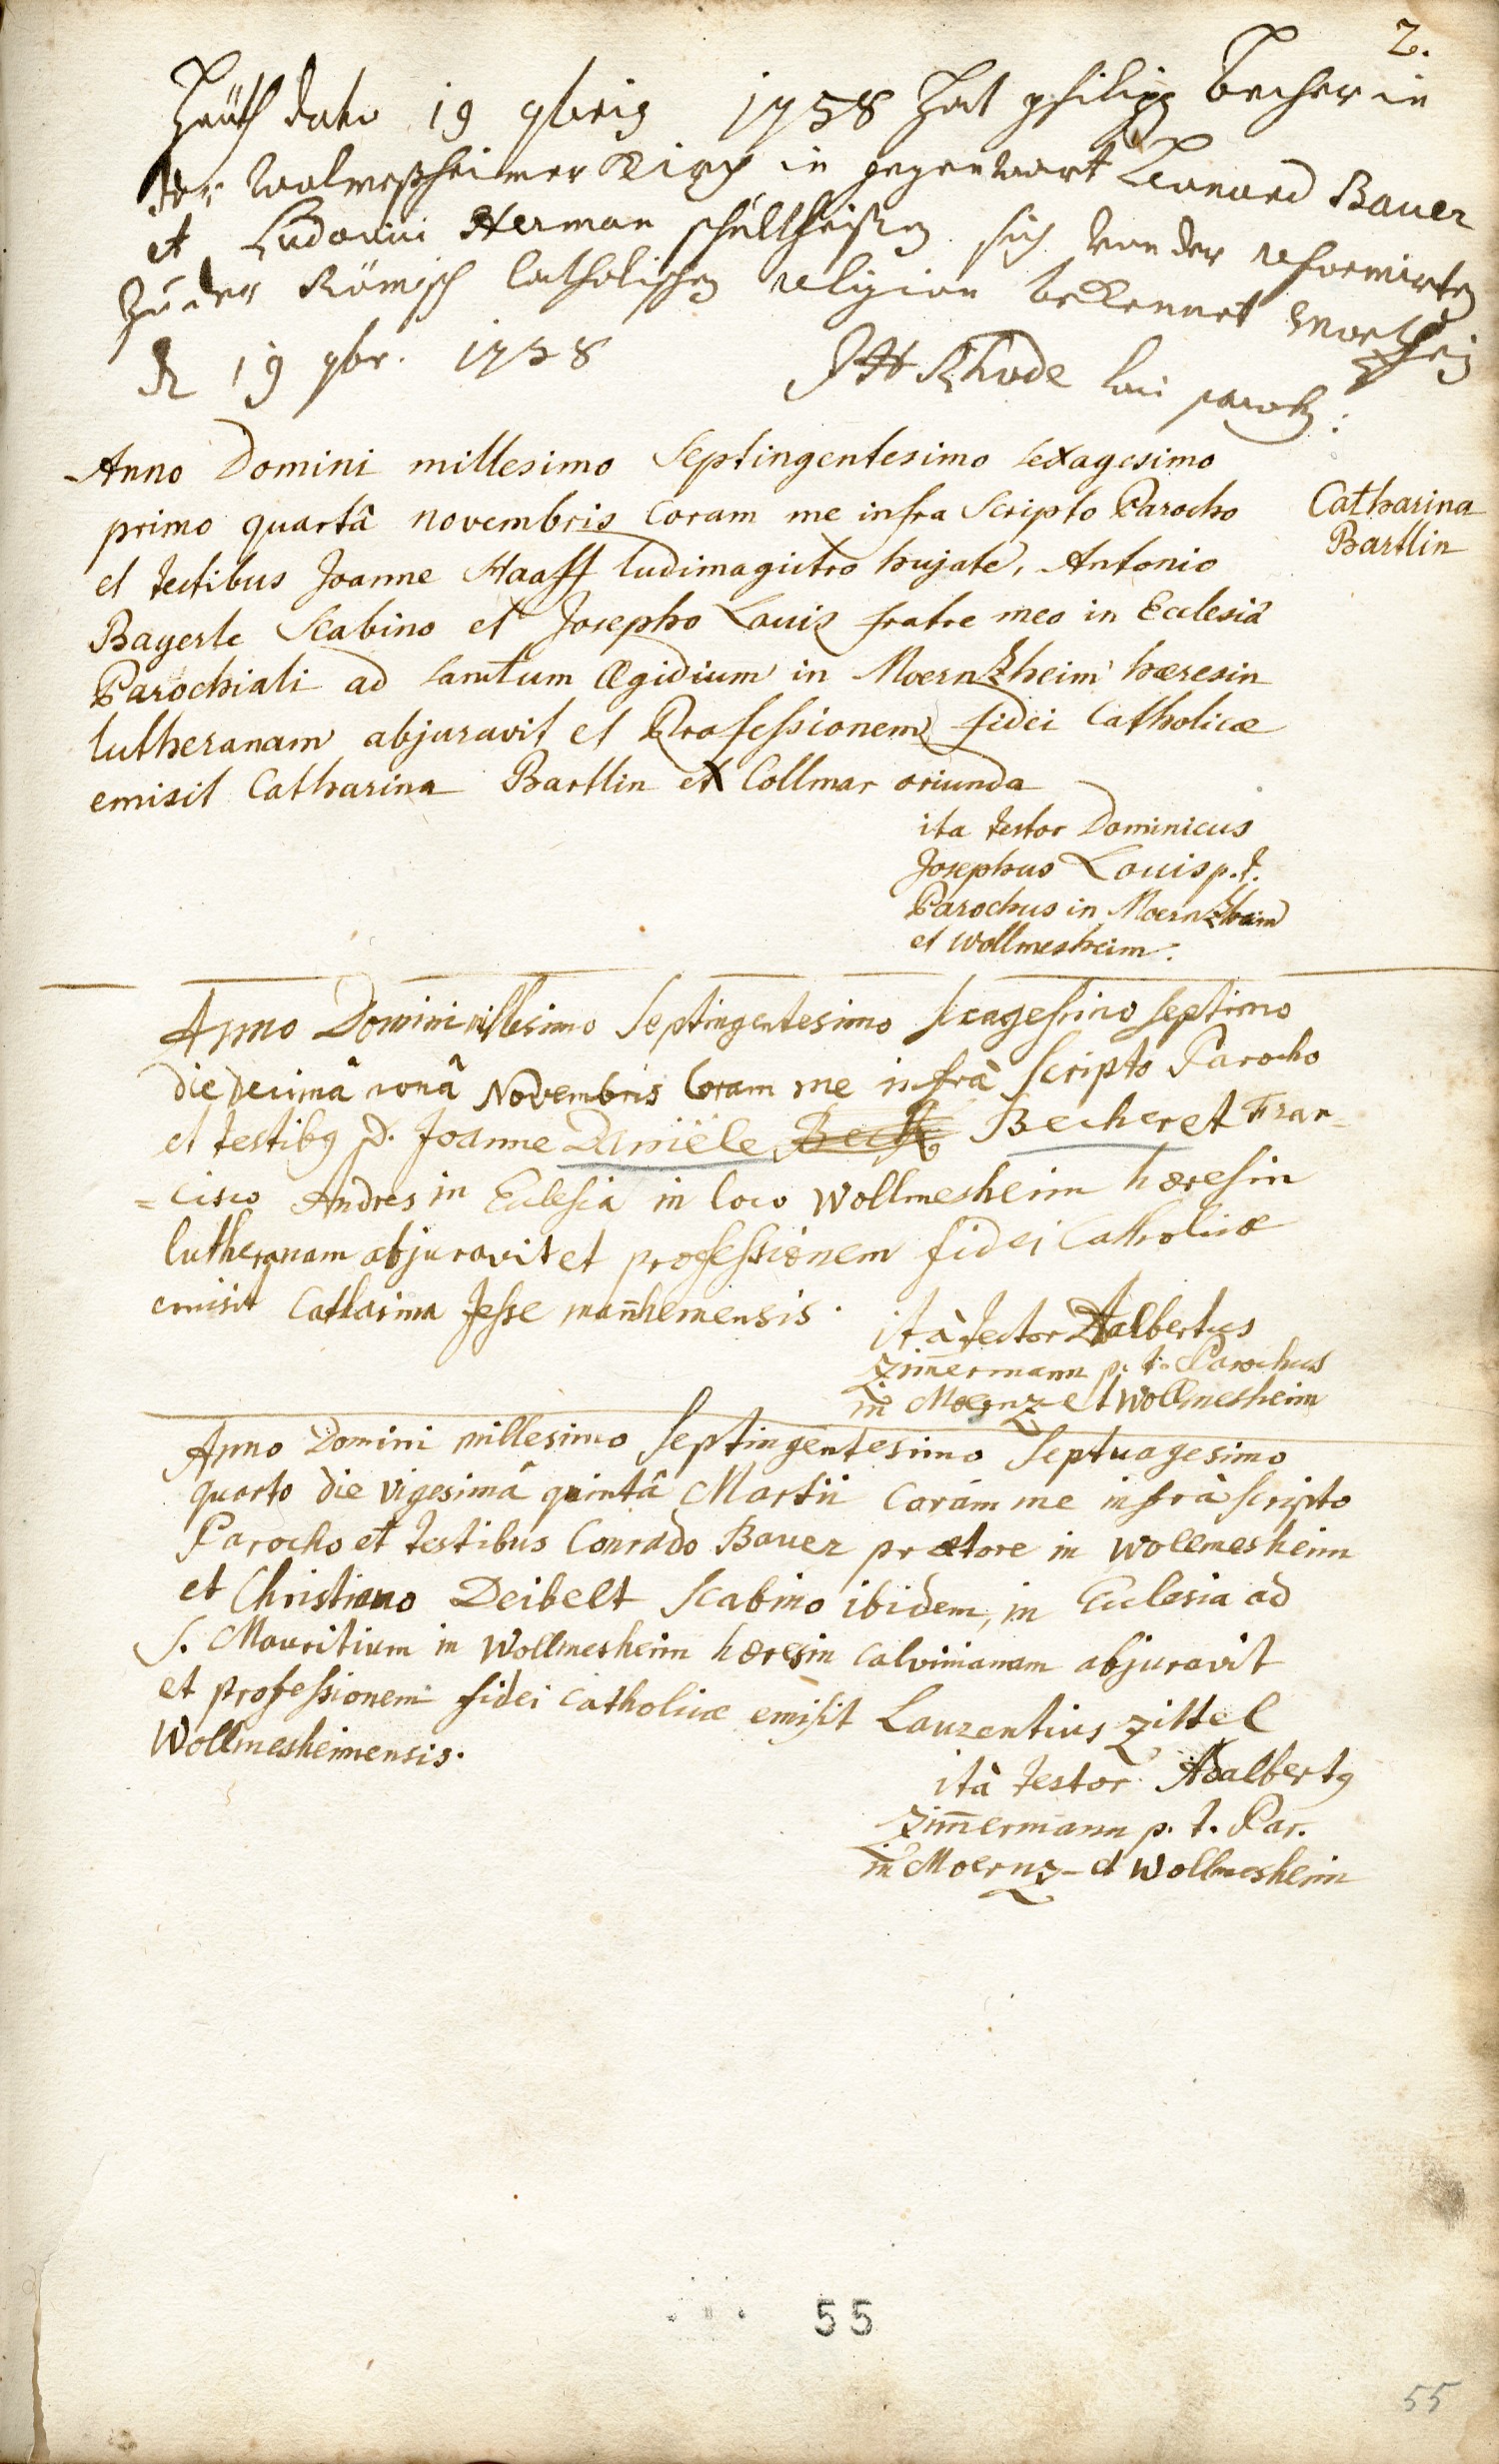 2.
Heüth dato 19 9bris 1758 hat philipp Becher in
der Wolmeßheimer Kirch in gegenwart Leonard Bauer
et Ludovici Herman schultheißen sich von der reformirten
zu der Römisch Catholischen religion bekennet
19 9br. 1758 JH Rhode loci
Anno Domini millesimo Septingentesimo sexagesimo
primo quartâ novembris Coram me infra Scripto Parocho
Catharina
Bartlin
et testibus Joanne Haaff ludimagistro hujate, Antonio
Bayerle Scabino et Josepho Louis fratre meo in Ecclesiâ
Parochiali ad sanctum Ægidium in Moernzheim hæresin
lutheranam abjuravit et Professionem fidei Catholicæ
emisit Catharina Bartlin ex Collmar oriunda
ita testor Dominicus
Josephus Louis p.t.
Parochus in Moernzheim
et Wollmesheim.
Anno Domini millesimo Septingentesimo sexagesimo septimo
die decimâ nonâ Novembris Coram me infrà Scripto Parocho
et testibq D. Joanne Daniële Becher et Fran-
=cisco Andres in Eclesia in loco Wollmesheim hæresin
lutheranam abjuravit et professionem fidei Catholicæ
emisit Catharina Jesse man̄hemensis.
ità testor Adalbertus
Zim̄ermann p. t. Parochus
in Moernz- et Wollmesheim
Anno Domini millesimo Septingentesimo Septuagesimo
quarto die vigesimâ quintâ Martii Coram me infrà scripto
Parocho et testibus Conrado Bauer prætore in Wollmesheim
et Christiano Deibelt Scabino ibidem, in Eclesia ad
S. Mauritium in Wollmesheim hæresin Calvinianam abjuravit
et professionem fidei Catholicæ emisit Laurentius Zittel
Wollmesheimensis.
ità testor Adalbertq
Zim̄ermann p. t. Par.
in Moernz- et Wollmesheim
55
55